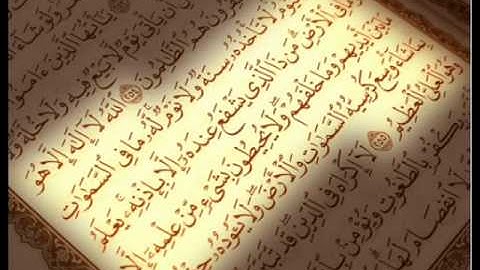 يَٰٓأَيُّهَا ٱلَّذِينَ ءَامَنُوٓا۟
يَأْتِىَ يَوْمٌ لَّا بَيْعٌ فِيهِ وَلَا خُلَّةٌ
هُمُ ٱلظَّٰلِمُونَ ٢٥٤ ٱللَّهُ لَآ إِلَٰهَ إِلَّا هُوَ
لَا تَأْخُذُهُۥ سِنَةٌ وَلَا نَوْمٌ لَّهُۥ مَا فِى ٱلسَّمَٰوَٰتِ
فِى ٱلْأَرْضِ مَن ذَا ٱلَّذِى يَشْفَعُ عِندَهُۥٓ إِلَّا بِإِذْنِهِۦ يَعْلَمُ
أَيْدِيهِمْ وَمَا خَلْفَهُمْ وَلَا يُحِيطُونَ بِشَىْءٍ مِّنْ عِلْمِهِۦٓ إِلَّا
شَآءَ وَسِعَ كُرْسِيُّهُ ٱلسَّمَٰوَٰتِ وَٱلْأَرْضَ وَلَا يَـُٔودُهُۥ
وَهُوَ ٱلْعَلِىُّ ٱلْعَظِيمُ ٢٥٥ لَآ إِكْرَاهَ فِى ٱلدِّينِ قَد تَّبَيَّنَ
يَكْفُرْ بِٱلطَّٰغُوتِ وَيُؤْمِنۢ
لَا ٱنفِصَامَ لَهَا